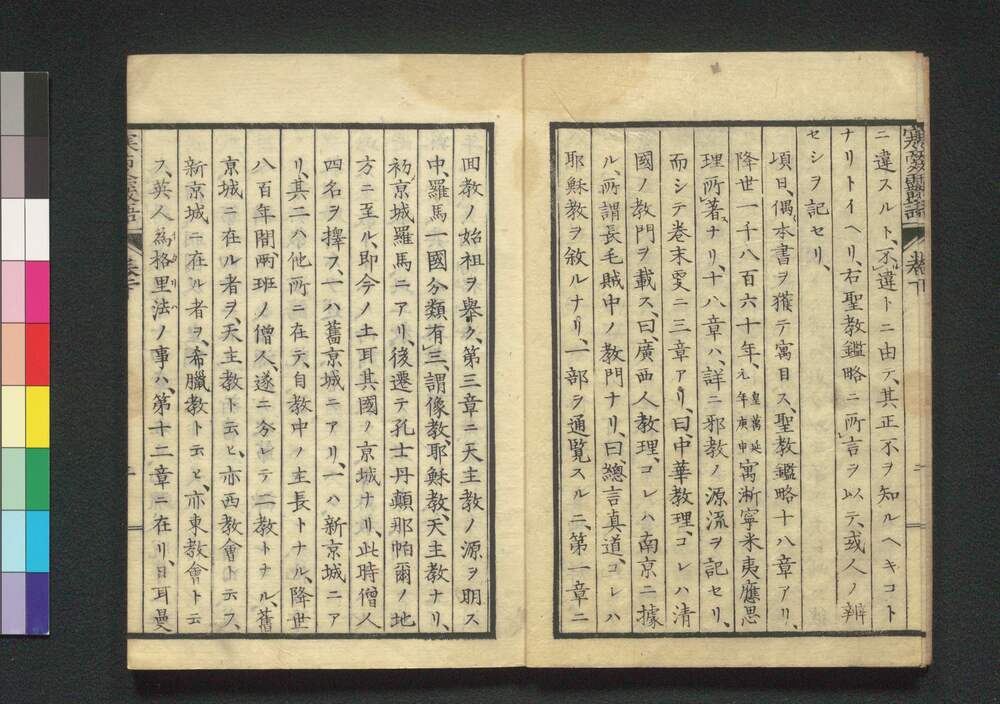 ニ違スルト、不違トニ由テ、其正不ヲ知ルヘキコト
ナリトイヘリ、右聖教鑑略ニ所言ヲ以テ、或人ノ辨
セシヲ記セリ、
頃日、偶本書ヲ獲テ寓目ス、聖教鑑略十八章アリ、
降世一千八百六十年、皇萬延元年庚申寓淅寧米夷應思
理所著ナリ、十八章ハ、詳ニ邪教ノ源流ヲ記セリ、
而シテ卷末更ニ三章アリ、曰中華教理、コレハ清
國ノ教門ヲ載ス、曰廣西人教理、コレハ南京ニ據
ル、所謂長毛賊中ノ教門ナリ、曰總言真道、コレハ
耶穌教ヲ敘ルナリ、一部ヲ通覧スルニ、第一章ニ
回教ノ始祖ヲ舉ク、第三章ニ天主教ノ源ヲ明ス
中、羅馬一國分類有三、謂像教、耶穌教、天主教ナリ、
初京城羅馬ニアリ、後遷テ孔士丹顛那帕爾ノ地
方ニ至ル、即今ノ土耳其國ノ京城ナリ、此時僧人
四名ヲ擇フ、一ハ舊京城ニアリ、一ハ新京城ニア
リ、其二ハ他所ニ在テ、自教中ノ主長トナル、降世
八百年間、兩班ノ僧人、遂ニ分レテ二教トナル、舊
京城ニ在ル者ヲ、天主教ト云ヒ、亦西教會ト云フ、
新京城ニ在ル者ヲ、希臘教ト云ヒ、亦東教會ト云
ス、英人為格里法ノ事ハ、第十二章ニ在リ、日耳曼